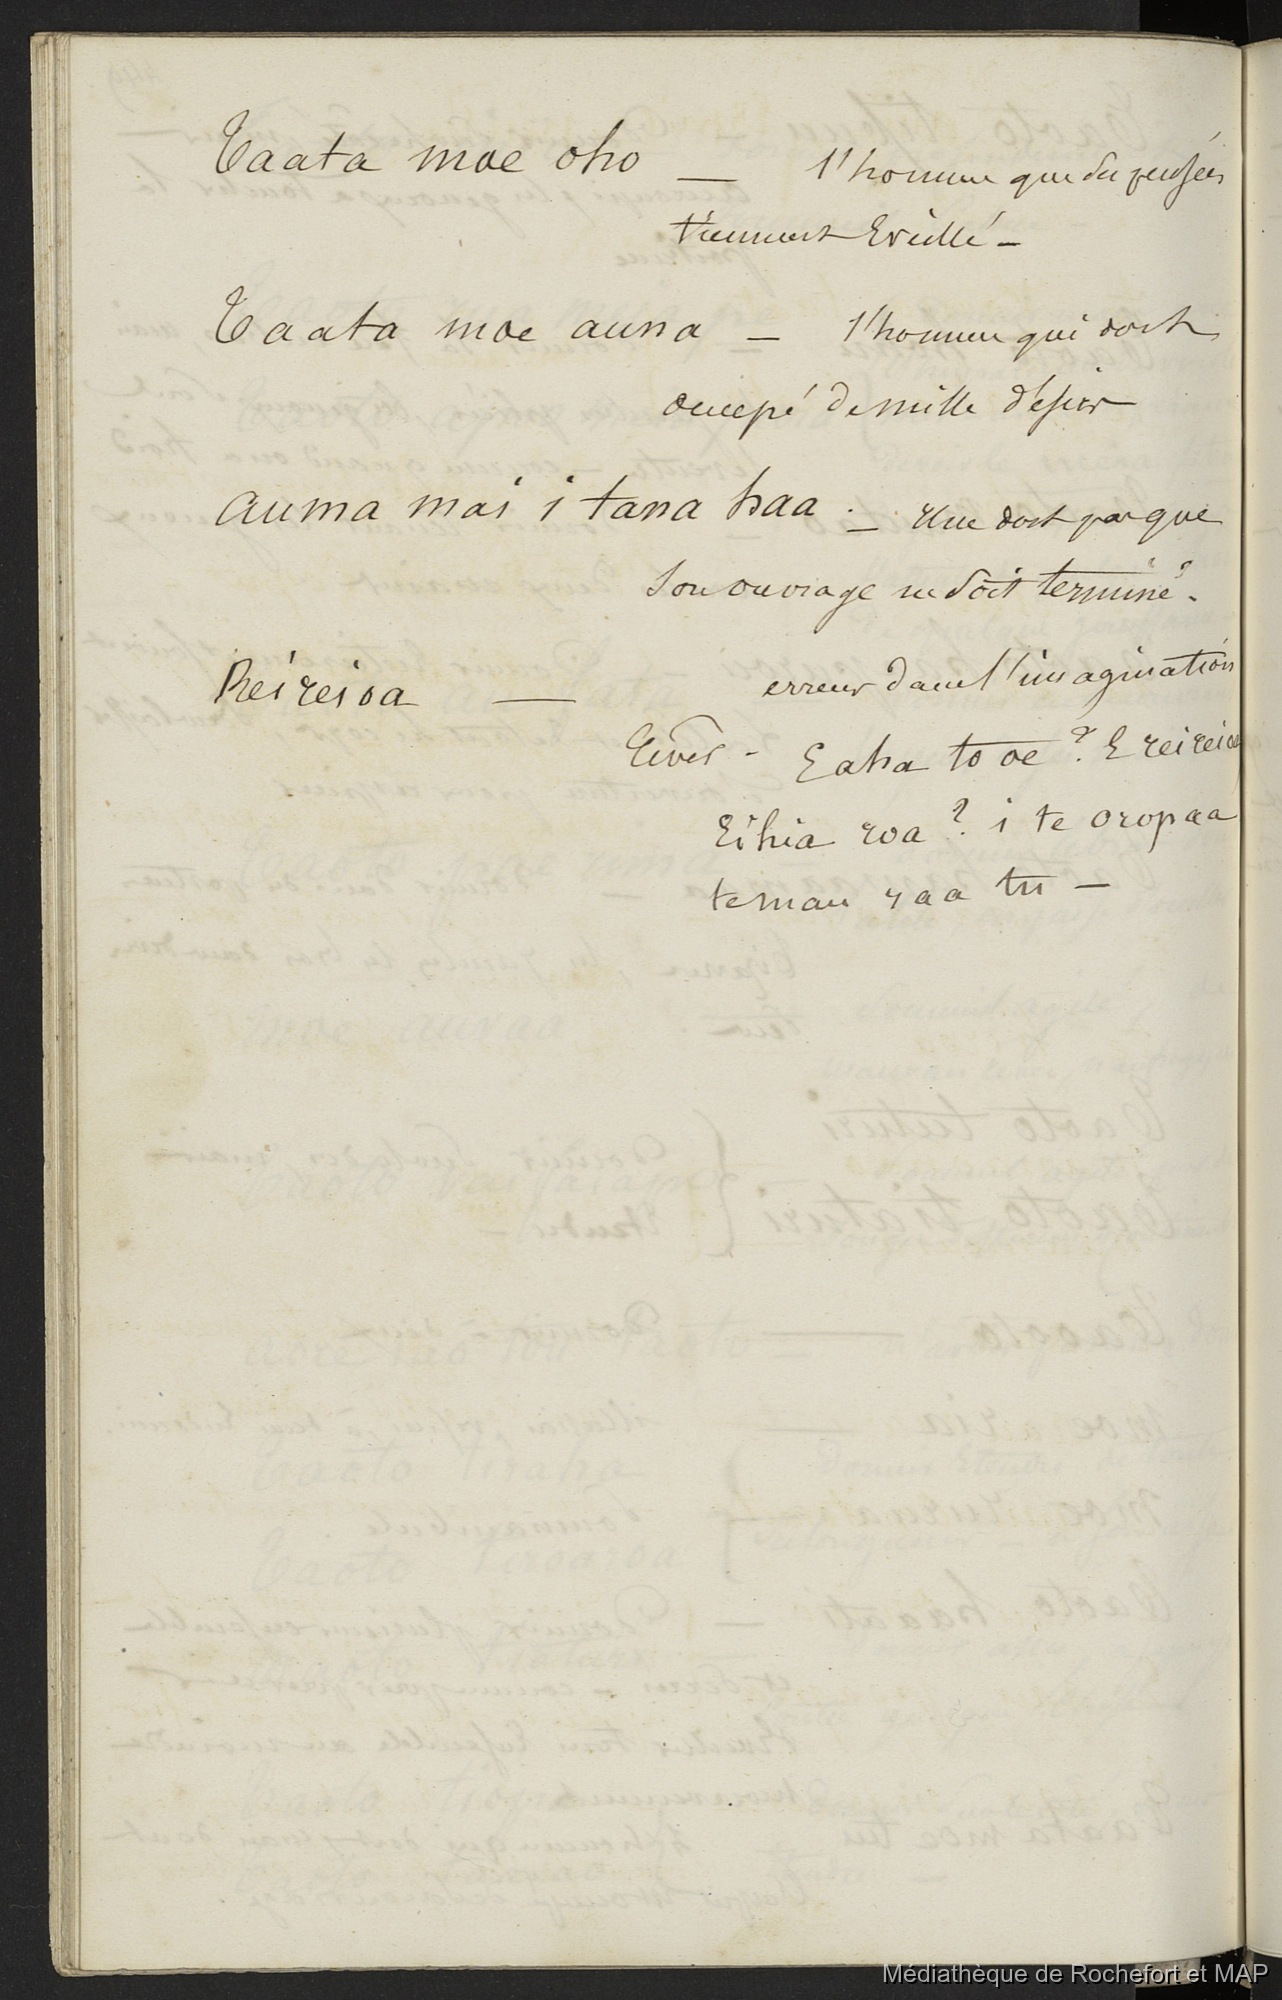 Taata moe oho — l'homme que des pensées
tiennent Eveillé —
Taata moe auna — l'homme qui dort
occupé de mille désirs
auma mai i tana haa . — Il ne dort pas que
son ouvrage ne soit terminé .
Reireioa — erreur dans l'imagination
Rêves - E aha to oe ? E reireioa
Eihia roa ? i te oropaa
te mau raa tu —
Médiathèque de Rochefort et MAP